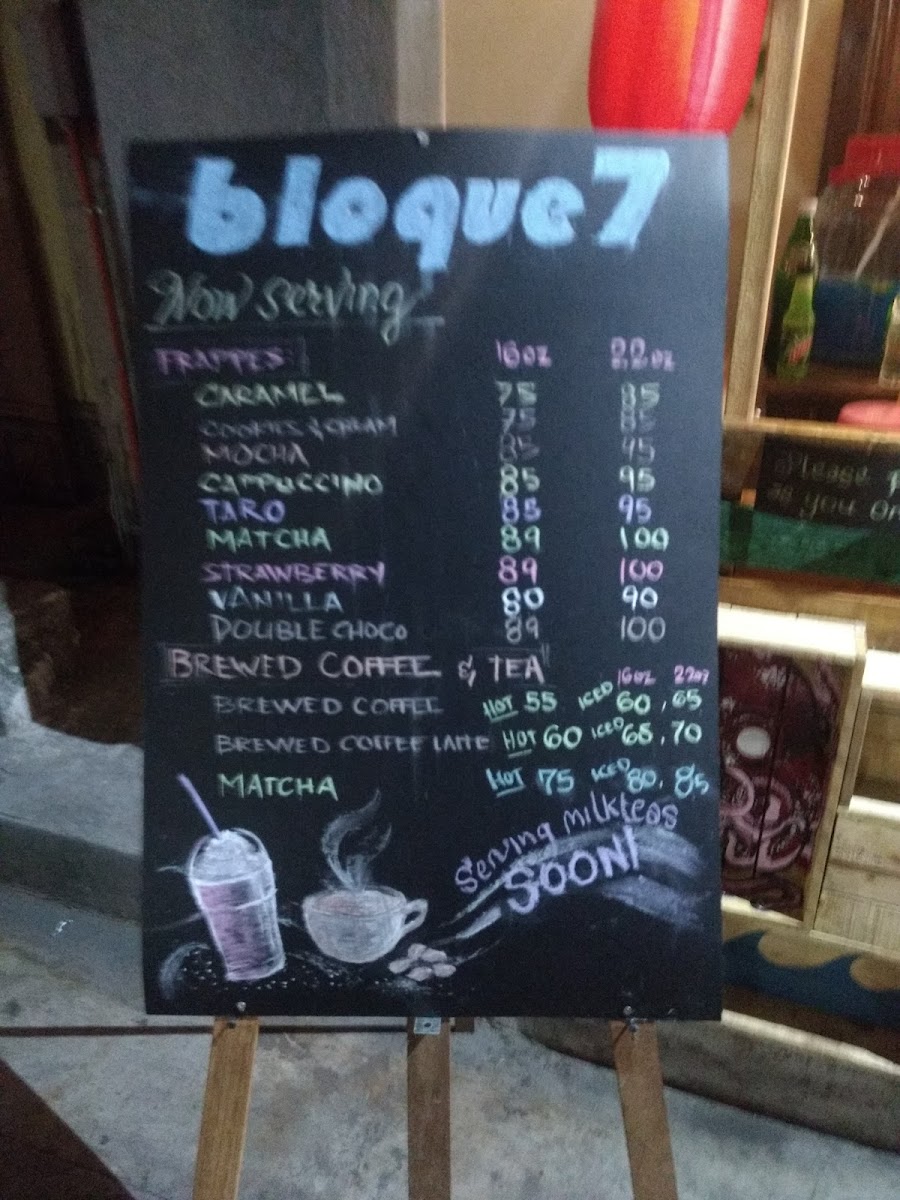 bloque 7
Now Serving
FRAPPES 16oz 22oz
CARAMEL 75 85
COOKIES & CREAM 75 85
MOCHA 85 95
CAPPUCCINO 85 95
TARO 85 95
MATCHA 89 100
STRAWBERRY 89 100
VANILLA 80 90
DOUBLE CHOCO 89 100
BREWED COFFEE & TEA 16oz 22oz
BREWED COFFEE HOT 55 ICED 60, 65
BREWED COFFEE LATTE HOT 60 ICED 65, 70
MATCHA HOT 75 ICED 80, 85
Serving milkteas
SOON!
Please
as you